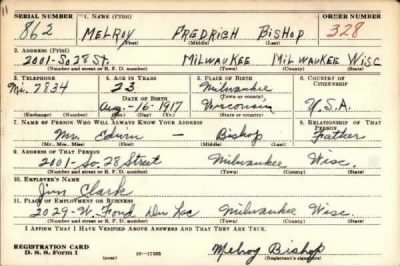 SERIAL NUMBER 1. NAME (Print) ORDER NUMBER
862 MELROY FREDRICH BISHOP 328
(First) (Middle) (Last)
2. ADDRESS (Print)
2001-So 28 St. MILWAUKEE MILWAUKEE WISC
(Number and street or R. F. D. number) (Town) (County) (State)
3. TELEPHONE 4. AGE IN YEARS 5. PLACE OF BIRTH 6. COUNTRY OF CITIZENSHIP
Mi. 7834 23 Milwaukee
DATE OF BIRTH (Town or county)
Aug-16-1917 Wisconsin U.S.A.
(Exchange) (Number) (Mo.) (Day) (Yr.) (State or country)
7. NAME OF PERSON WHO WILL ALWAYS KNOW YOUR ADDRESS 8. RELATIONSHIP OF THAT PERSON
Mr. — Bishop Father
(Mr., Mrs., Miss) (First) (Middle) (Last)
9. ADDRESS OF THAT PERSON
2001-So. 28 Street Milwaukee Wisc.
(Number and street or R. F. D. number) (Town) (County) (State)
10. EMPLOYER'S NAME
Jim Clark
11. PLACE OF EMPLOYMENT OR BUSINESS
2029-W. Fond Du Lac Milwaukee Wisc.
(Number and street or R. F. D. number) (Town) (County) (State)
I AFFIRM THAT I HAVE VERIFIED ABOVE ANSWERS AND THAT THEY ARE TRUE.
REGISTRATION CARD
D. S. S. Form 1 (over) Melroy Bishop
(Registrant's signature)